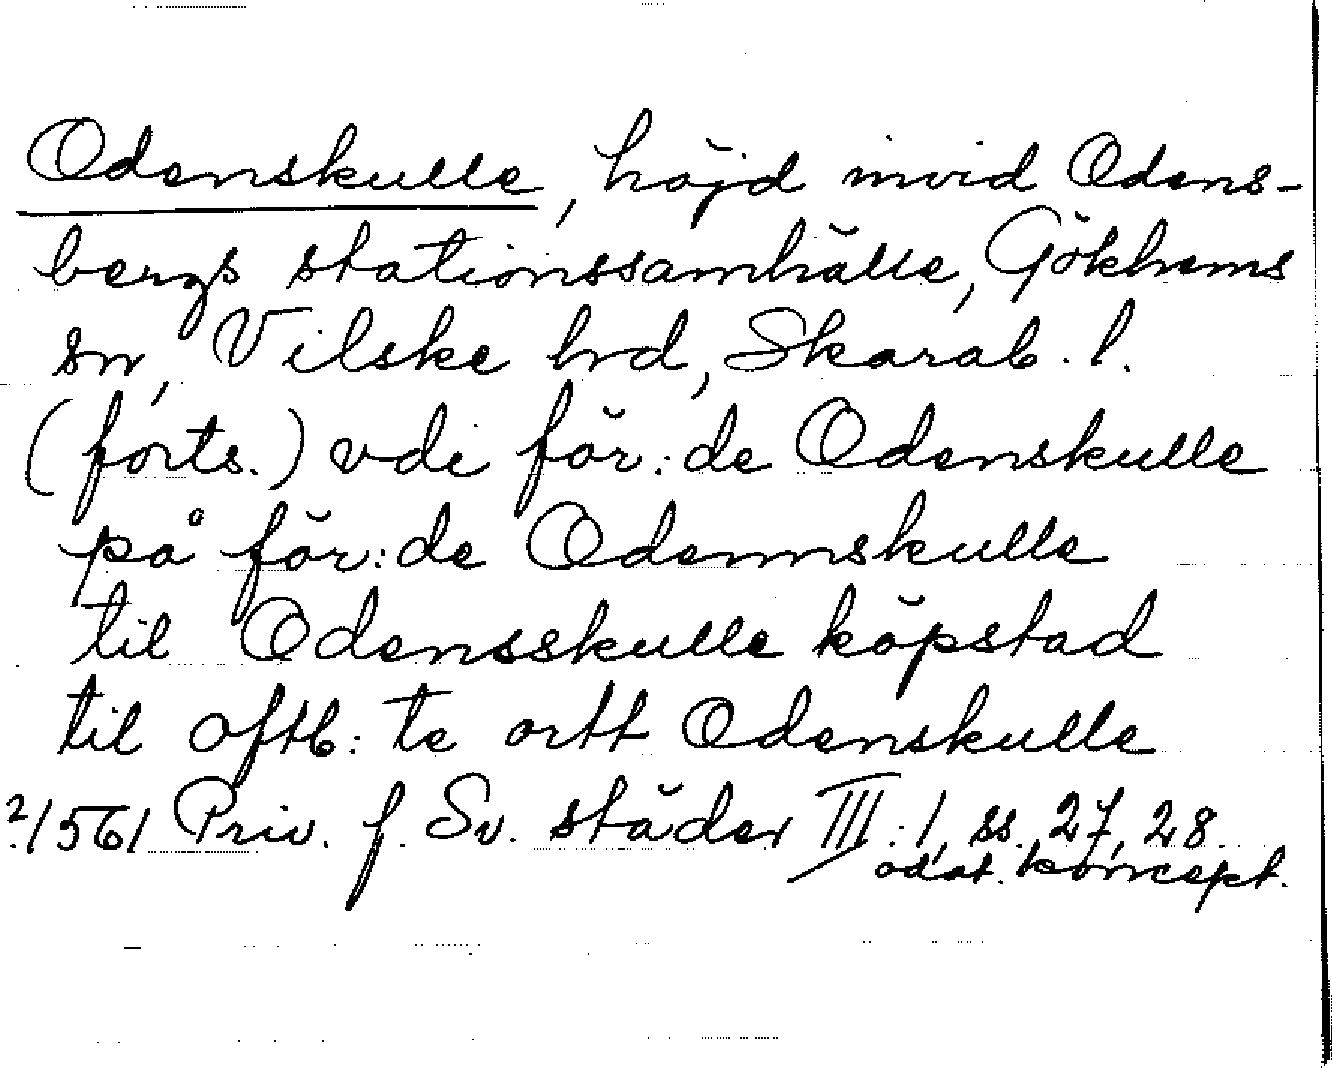 Odenskulle, höjd invid Odens-
bergs stationssamhälle, Gökhems
sn, Vilske hd, Skarab. l.
(forts.) vdi för:de Odenskulle
på för:de Odennskulle
til Odensskulle köpstad
til oftb:te ortt Odenskulle
2/561 Priv. f. Sv. städer III:1, ss. 27, 28.
odat. koncept.